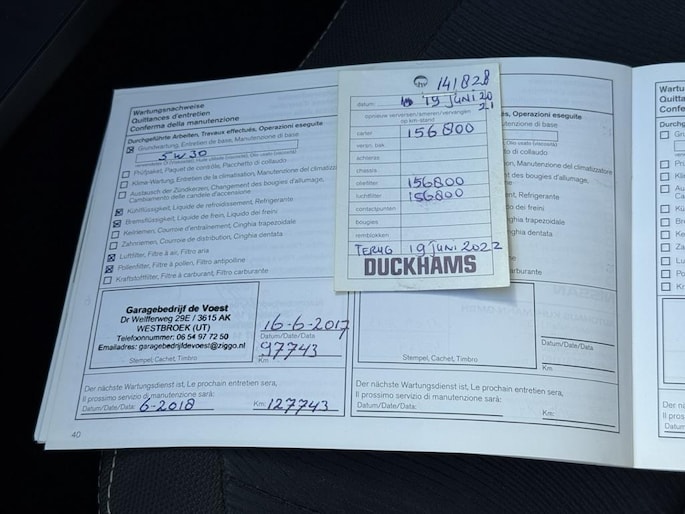 Wartungsnachweise
Quittances d'entretien
Conferma della manutenzione
Durchgeführte Arbeiten, Travaux effectués, Operazioni eseguite
Grundwartung, Entretien de base, Manutenzione di base
5W30
Prüfpaket, Paquet de contrôle, Pacchetto di collaudo
Klima-Wartung, Entretien de la climatisation, Manutenzione del climatizzatore
Austausch der Zündkerzen, Changement des bougies d'allumage,
Cambiamento delle candele d'accensione
Kühlflüssigkeit, Liquide de refroidissement, Refrigerante
Bremsflüssigkeit, Liquide de frein, Liquido dei freini
Keilriemen, Courroie d'entraînement, Cinghia trapezoidale
Zahnriemen, Courroie de distribution, Cinghia dentata
Luftfilter, Filtre à air, Filtro aria
Pollenfilter, Filtre à pollen, Filtro antipolline
Kraftstofffilter, Filtre à carburant, Filtro carburante
Garagebedrijf de Voest
Dr Welfferweg 29E / 3615 AK
WESTBROEK (UT)
Telefoonnummer: 06 54 97 72 50
Emailadres: garagebedrijfdevoest@ziggo.nl
Stempel, Cachet, Timbro
16-6-2017
Datum/Date/Data
97743
Km
Der nächste Wartungsdienst ist, Le prochain entretien sera,
Il prossimo servizio di manutenzione sarà:
Datum/Date/Data: 6-2018 Km: 127743
40
141828
datum 19 JUNI 20
21
opnieuw verversen/smeren/vervangen
op km-stand
carter 156800
versn. bak
achteras
chassis
oliefilter 156800
luchtfilter 156800
contactpunten
bougies
remblokken
TERUG 19 JUNI 2022
DUCKHAMS
s, Operazioni eseguite
tenzione di base
di collaudo
n, Manutenzione del climatizzatore
ent des bougies d'allumage,
ent, Refrigerante
dei freini
ghia trapezoidale
ghia dentata
carburante
Stempel, Cachet, Timbro
Datum/Date/Data
Km
Der nächste Wartungsdienst ist, Le prochain entretien sera,
Il prossimo servizio di manutenzione sarà:
Datum/Date/Data: Km:
Wartu
Quitta
Confe
Durchg
Gru
Prü
Klim
Aus
Car
Kü
Bre
Kei
Zah
Luf
Po
Kra
Der nä
Il pros
Datum